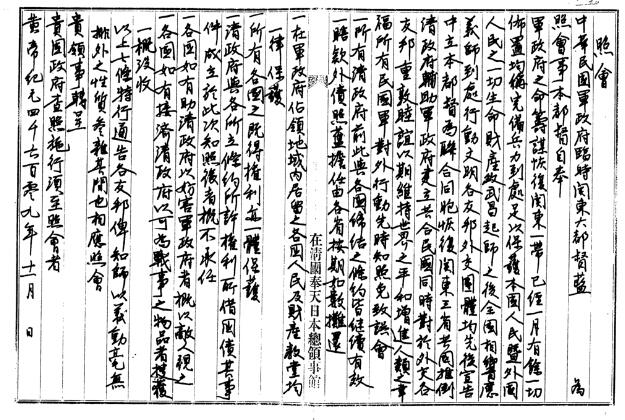 照會
中華民國軍政府臨時關東大都督藍　為
照會事本都督自奉
軍政府之命籌謀恢復關東一帶已經一月有餘一切
佈置均稱完備兵力到處足以保護本國人民暨外國
人民之一切生命財產故武昌起師之後全國相響應
義師到處行動文明各友邦外交團體均先後宣告
中立本都督為聯合同胞恢復關東三省共圖推倒
清政府輔助軍政府建立共合民國同時對於外交各
友邦重敦睦誼以期維持世界之平和增進人類之幸
福所有民國軍對外行動先時知照免致誤會
一所有清政府前此與各國締結之條約皆繼續有效
一賠款外債照舊擔任由各省按期如數攤還
一在軍政府佔領地域內居留之各國人民及財產教堂均
一律保護
一所有各國之既得權利亦一體保護
一清政府與各國所立條約所許權利所借國債其事
件成立於此次知照後者概不承任
一各國如有助清政府以妨害軍政府者概以敵視之
一各國如有接濟清政府以可為戰事之物品者搜獲
概沒收
以上七條特行通告各友邦俾知師以義動毫無
排外之性質參雜其間也相應照會
貴領事轉呈
貴國政府查照施行須至照會者
黃帝紀元四千六百零九年十一月　日
在清國奉天日本總領事館